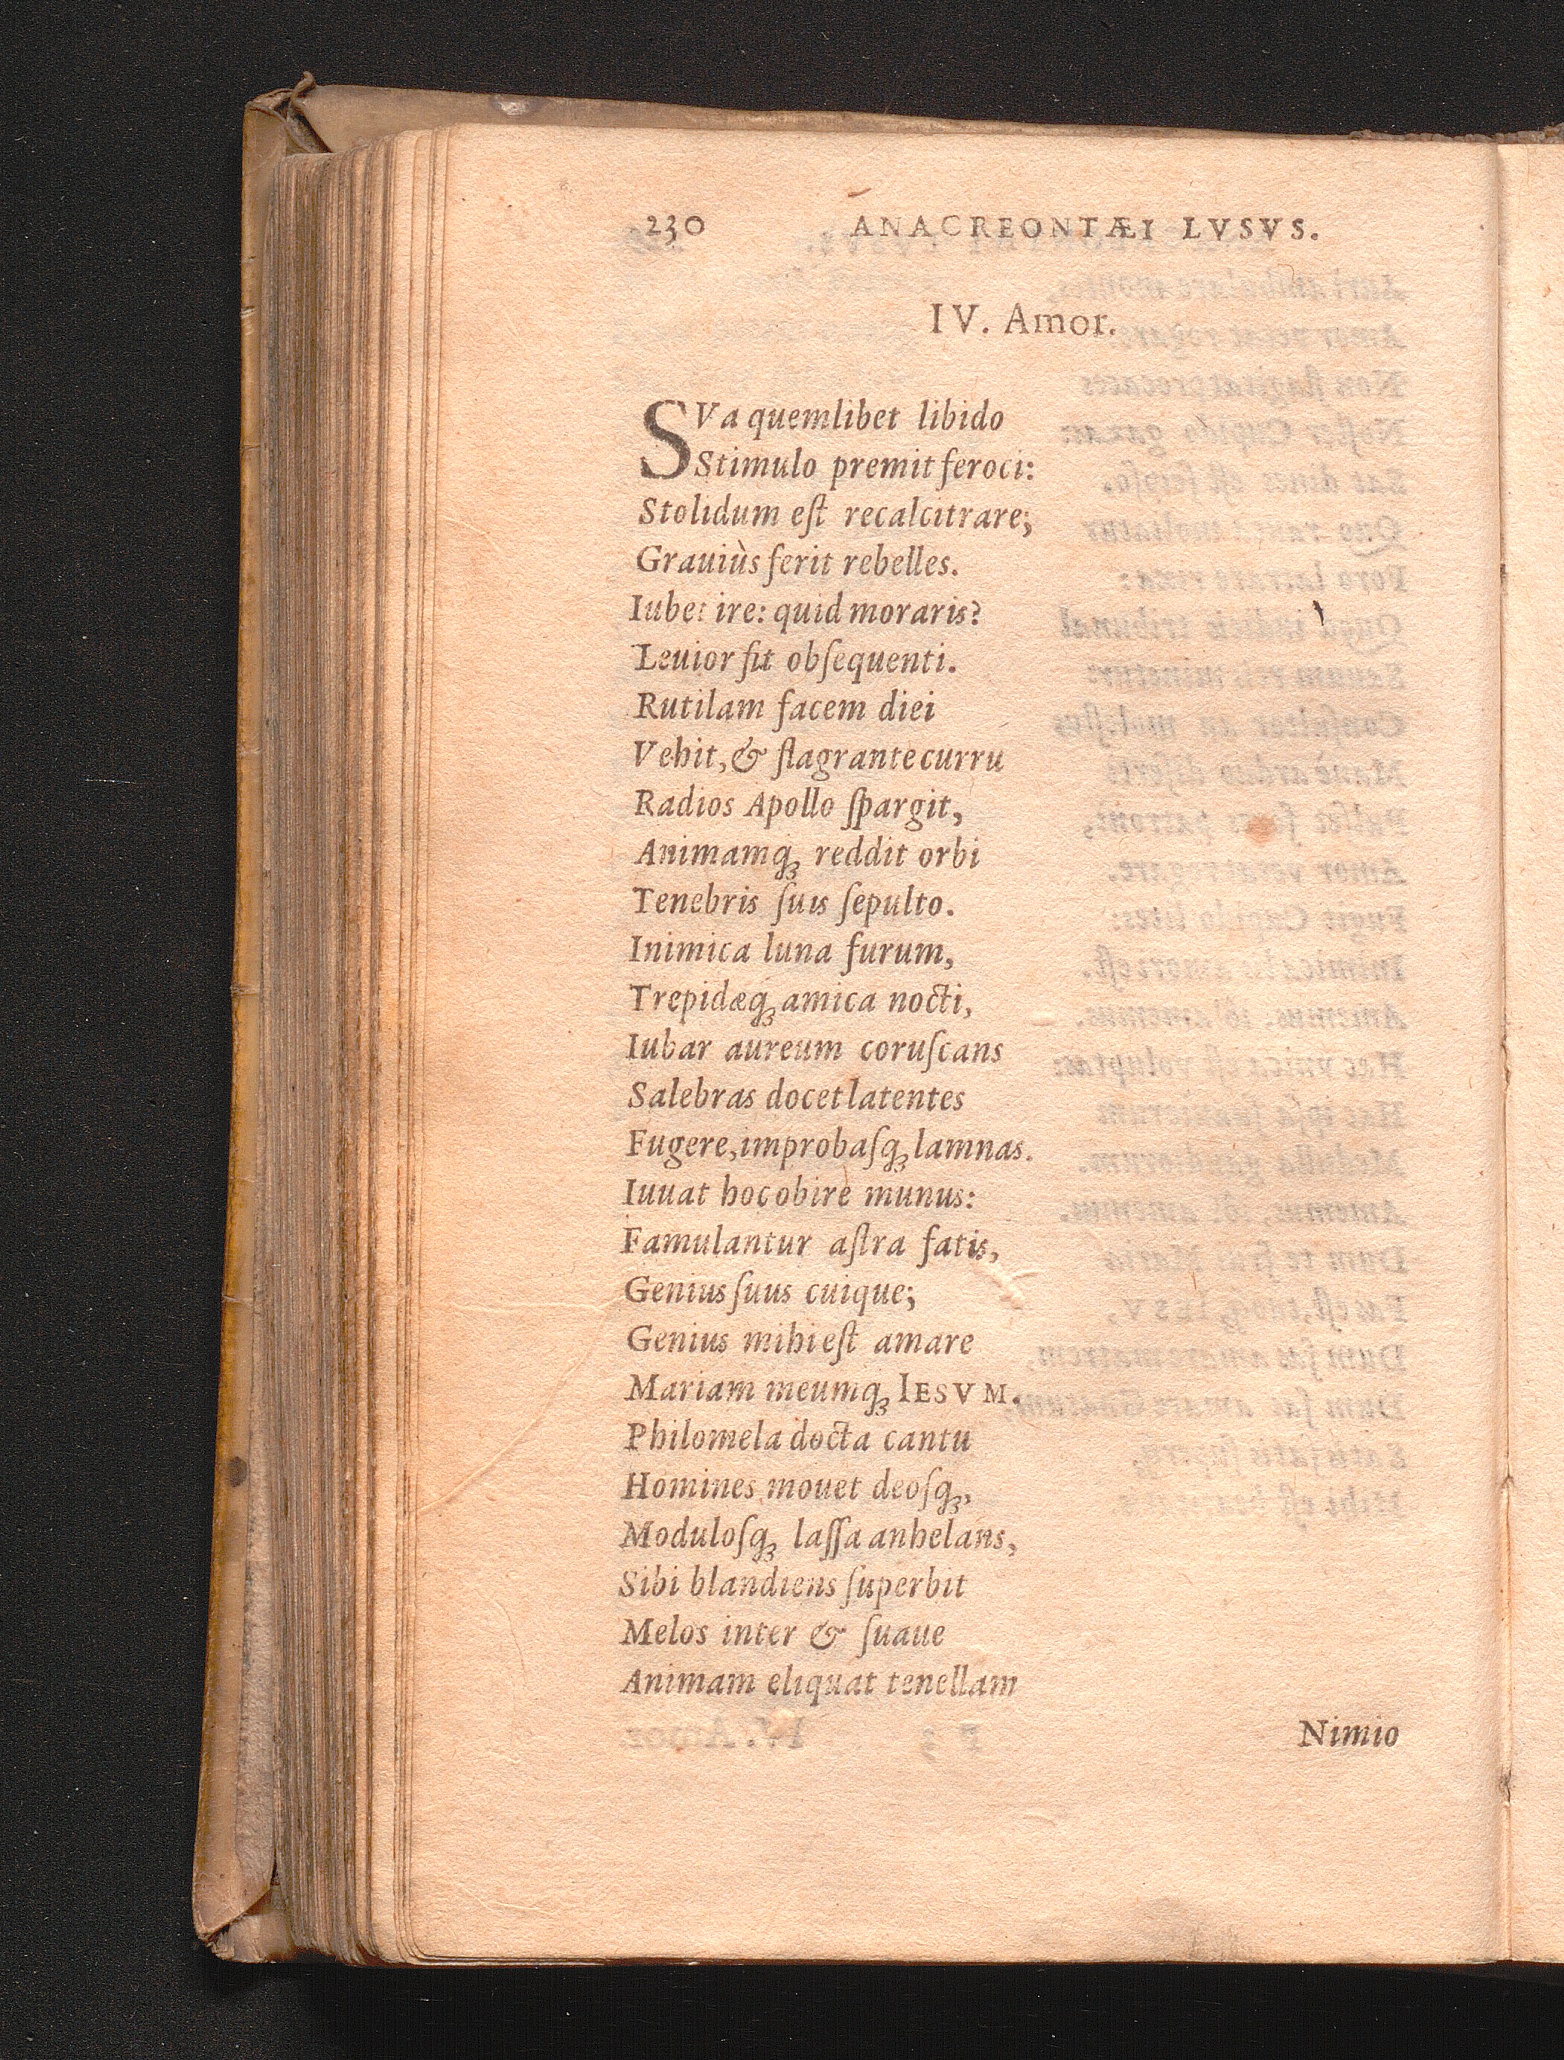 230 ANACREONTÆI LVSVS.
IV. Amor.
SVa quemlibet libido
Stimulo premit feroci:
Stolidum eſt recalcitrare;
Grauiùs ferit rebelles.
Iubet ire: quid moraris?
Leuior fit obſequenti.
Rutilam facem diei
Vehit, & flagrante curru
Radios Apollo ſpargit,
Animamq́ꝫ reddit orbi
Tenebris ſuis ſepulto.
Inimica luna furum,
Trepidæq́ꝫ amica nocti,
Iubar aureum coruſcans
Salebras docet latentes
Fugere, improbaſq́ꝫ lamnas.
Iuuat hoc obire munus:
Famulantur aſtra fatis,
Genius ſuus cuique;
Genius mihi eſt amare
Mariam meumq́ꝫ IESVM.
Philomela docta cantu
Homines mouet deoſq́ꝫ,
Moduloſq́ꝫ laſſa anhelans,
Sibi blandiens ſuperbit
Melos inter & ſuaue
Animam eliquat tenellam
Nimio